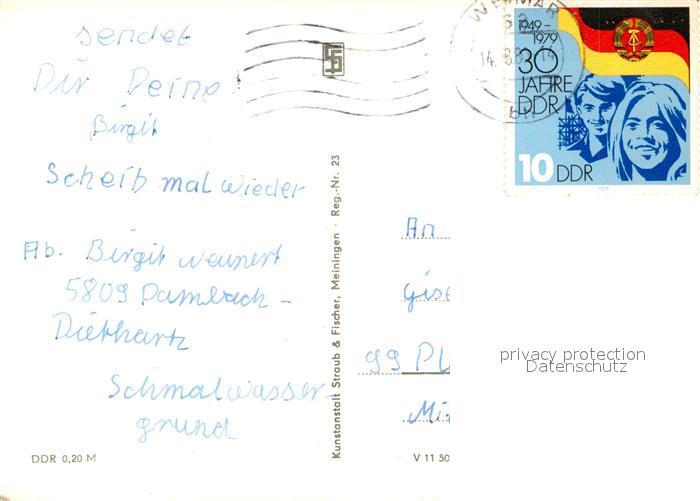 sendet
Dir Deine
Birgit
Scheib mal wieder
Ab. Birgit Weunert
5809 Dambach-
Diethartz
Schmalwasser-
grund
DDR 0,20 M
Kunstanstalt Straub & Fischer, Meiningen · Reg.-Nr. 23
WEIMAR
1949-
1979
30
JAHRE
DDR
10 DDR
An
99 Pl
privacy protection
Datenschutz
V 11 50